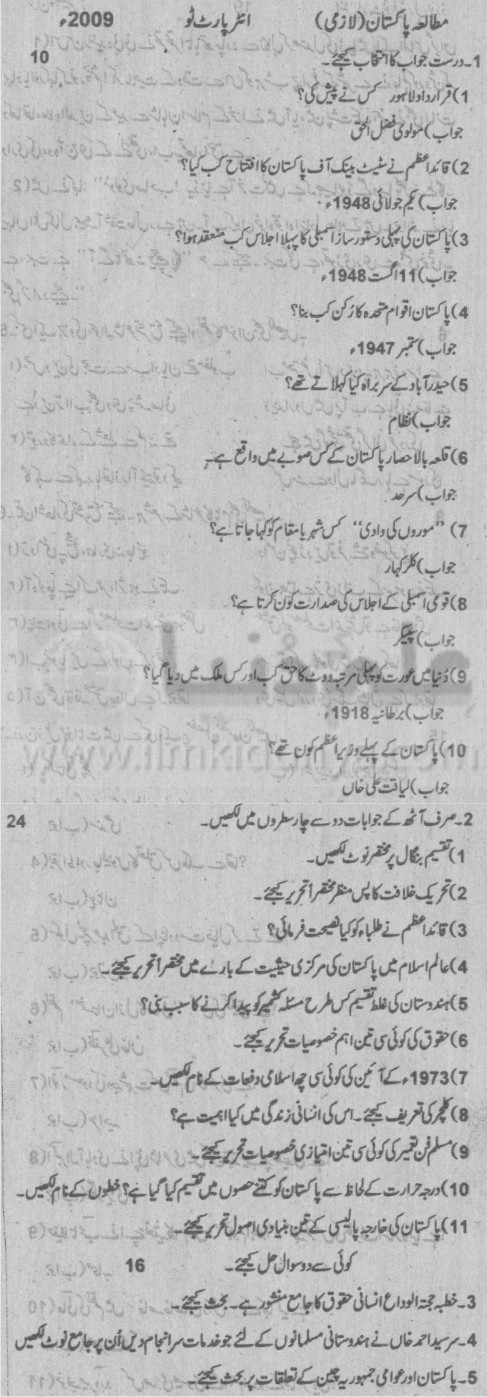 مطالعہ پاکستان (لازمی) انٹر پارٹ ٹو 2009ء
1۔ درست جواب کا انتخاب کیجئے۔ 10
1) قرارداد لاہور کس نے پیش کی؟
جواب) مولوی فضل الحق
2) قائداعظم نے سٹیٹ بینک آف پاکستان کا افتتاح کب کیا؟
جواب) یکم جولائی 1948ء
3) پاکستان کی پہلی دستور ساز اسمبلی کا پہلا اجلاس کب منعقد ہوا؟
جواب) 11 اگست 1948ء
4) پاکستان اقوام متحدہ کا رُکن کب بنا؟
جواب) ستمبر 1947ء
5) حیدرآباد کے سربراہ کیا کہلاتے تھے؟
جواب) نظام
6) قلعہ بالا حصار پاکستان کے کس صوبے میں واقع ہے۔
جواب) سرحد
7) ”موروں کی وادی“ کس شہر یا مقام کو کہا جاتا ہے؟
جواب) کلر کہار
8) قومی اسمبلی کے اجلاس کی صدارت کون کرتا ہے؟
جواب) سپیکر
9) دُنیا میں عورت کو پہلی مرتبہ ووٹ کا حق کب اور کس ملک میں دیا گیا؟
جواب) برطانیہ 1918ء
10) پاکستان کے پہلے وزیراعظم کون تھے؟
جواب) لیاقت علی خاں
2۔ صرف آٹھ کے جوابات دو سے چار سطروں میں لکھیں۔ 24
1) تقسیم بنگال پر مختصر نوٹ لکھیں۔
2) تحریک خلافت کا پس منظر مختصراً تحریر کیجئے۔
3) قائداعظم نے طلباء کو کیا نصیحت فرمائی؟
4) عالم اسلام میں پاکستان کی مرکزی حیثیت کے بارے میں مختصراً تحریر کیجئے۔
5) ہندوستان کی غلط تقسیم کس طرح مسئلہ کشمیر کو پیدا کرنے کا سبب بنی؟
6) حقوق کی کوئی سی تین اہم خصوصیات تحریر کیجئے۔
7) 1973ء کے آئین کی کوئی سی چھ اسلامی دفعات کے نام لکھیں۔
8) کلچر کی تعریف کیجئے۔ اس کی انسانی زندگی میں کیا اہمیت ہے؟
9) مسلم فن تعمیر کی کوئی سی تین امتیازی خصوصیات تحریر کیجئے۔
10) درجہ حرارت کے لحاظ سے پاکستان کو کتنے حصوں میں تقسیم کیا گیا ہے؟ خطوں کے نام لکھیں۔
11) پاکستان کی خارجہ پالیسی کے تین بنیادی اصول تحریر کیجئے۔
کوئی سے دو سوال حل کیجئے۔ 16
3۔ خطبہ حجۃ الوداع انسانی حقوق کا جامع منشور ہے۔ بحث کیجئے۔
4۔ سرسید احمد خاں نے ہندوستانی مسلمانوں کے لئے جو خدمات سرانجام دیں اُن پر جامع نوٹ لکھیں
5۔ پاکستان اور عوامی جمہوریہ چین کے تعلقات پر بحث کیجئے۔